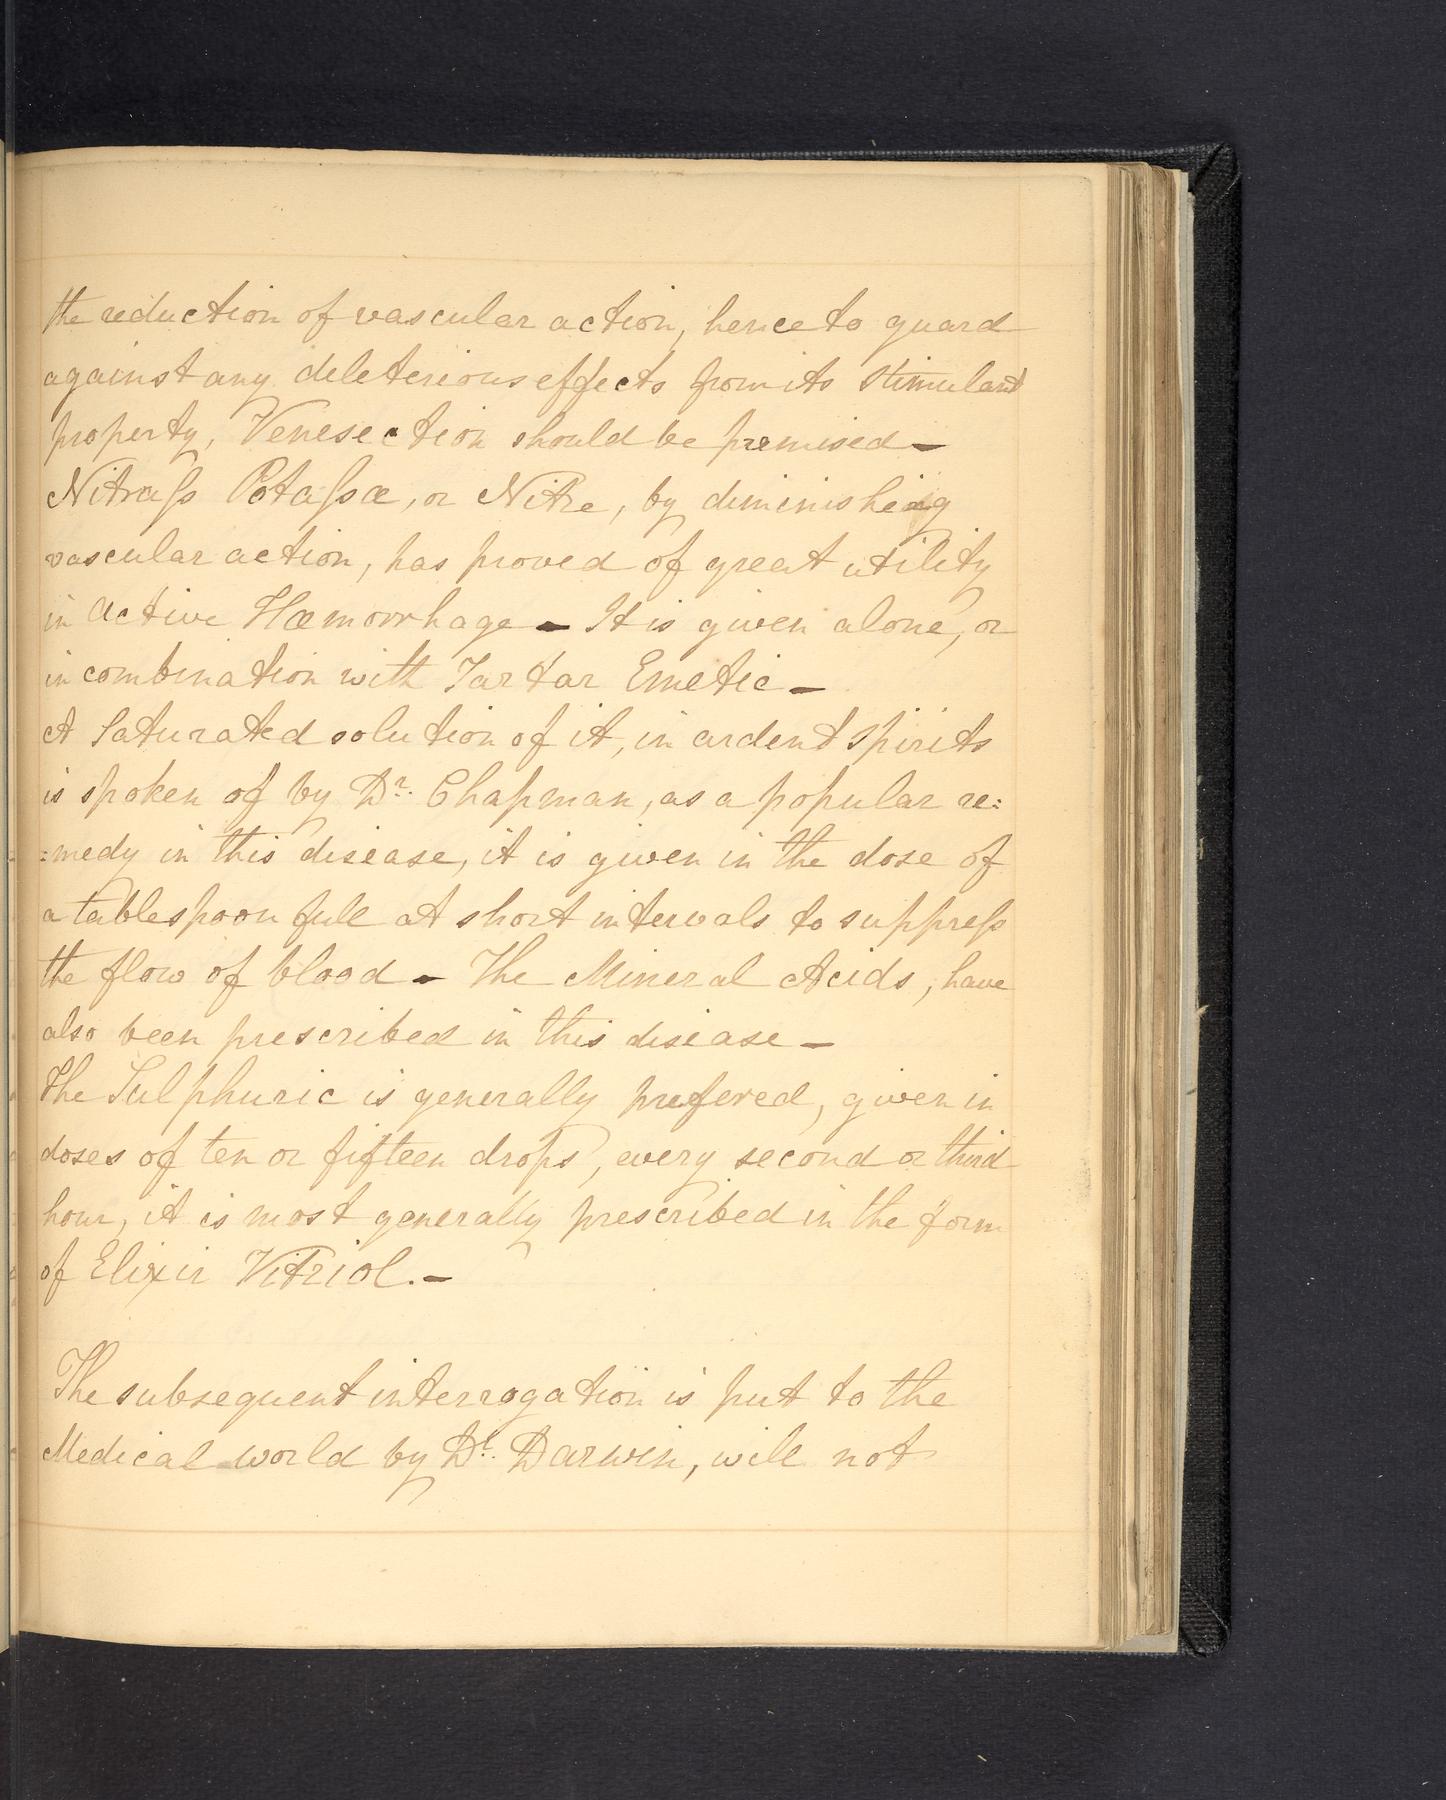 the reduction of vascular action, hence to guard
against any deleterious effects from its stimulant
property, Venesection should be premised —
Nitraſs Potaſsæ, or Nitre, by diminishing
vascular action, has proved of great utility
in active Hæmorrhage — It is given alone, or
in combination with Tartar Emetic —
A Saturated solution of it, in ardent spirits
is spoken of by Dr. Chapman, as a popular re=
=medy in this disease, it is given in the dose of
a tablespoon full at short intervals to suppreſs
the flow of blood — The Mineral Acids, have
also been prescribed in this disease —
The Sulphuric is generally prefered, given in
doses of ten or fifteen drops, every second or third
hour, it is most generally prescribed in the form
of Elixir Vitriol. —
The subsequent interrogation is put to the
Medical world by Dr. Darwin, will not